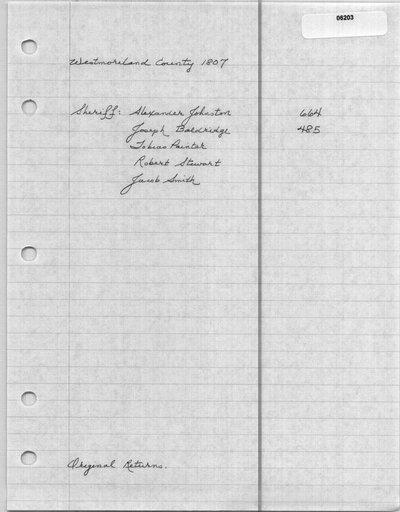 06203
Westmoreland County 1807
Sheriff: Alexander Johnston 664
Joseph Baldridge 485
Tobias Painter
Robert Stewart
Jacob Smith
Original Returns.